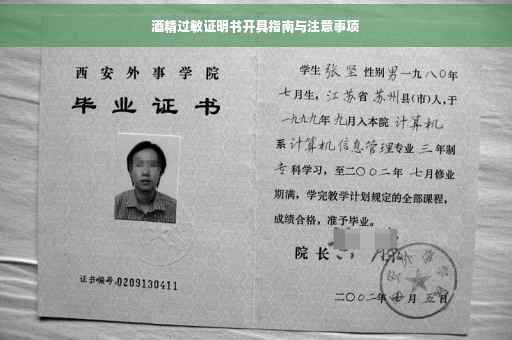 酒精过敏证明书开具指南与注意事项
西安外事学院
毕业证书
证书编号:0209130411
学生 张坚 性别 男 一九八0年
七月生, 江苏省 苏州县(市)人,于
一九九九年 九月入本院 计算机
系 计算机信息管理专业 三 年制
专 科学习, 至二〇〇二年 七月修业
期满, 学完教学计划规定的全部课程,
成绩合格, 准予毕业。
院长
二〇〇二年 月 五日